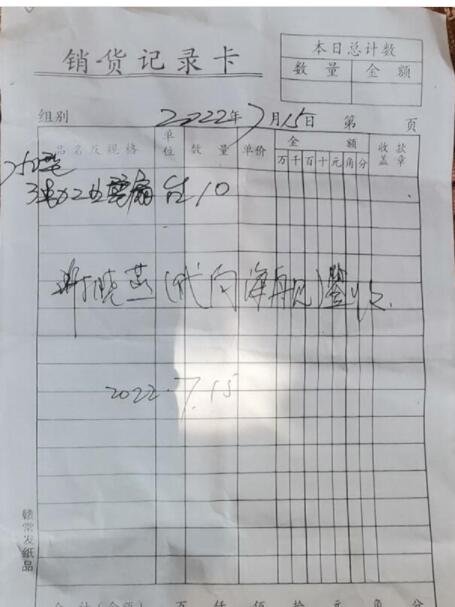 销货记录卡
本日总计数
数量 金额
组别 2022年7月15日 第 页
品名及规格 单位 数量 单价 金额 收款盖章
万千百十元角分
台 10
燕(代向海舰)鉴收
2022.7.15
赣常发纸品
合计(金额) 万 仟 佰 拾 元 角 分